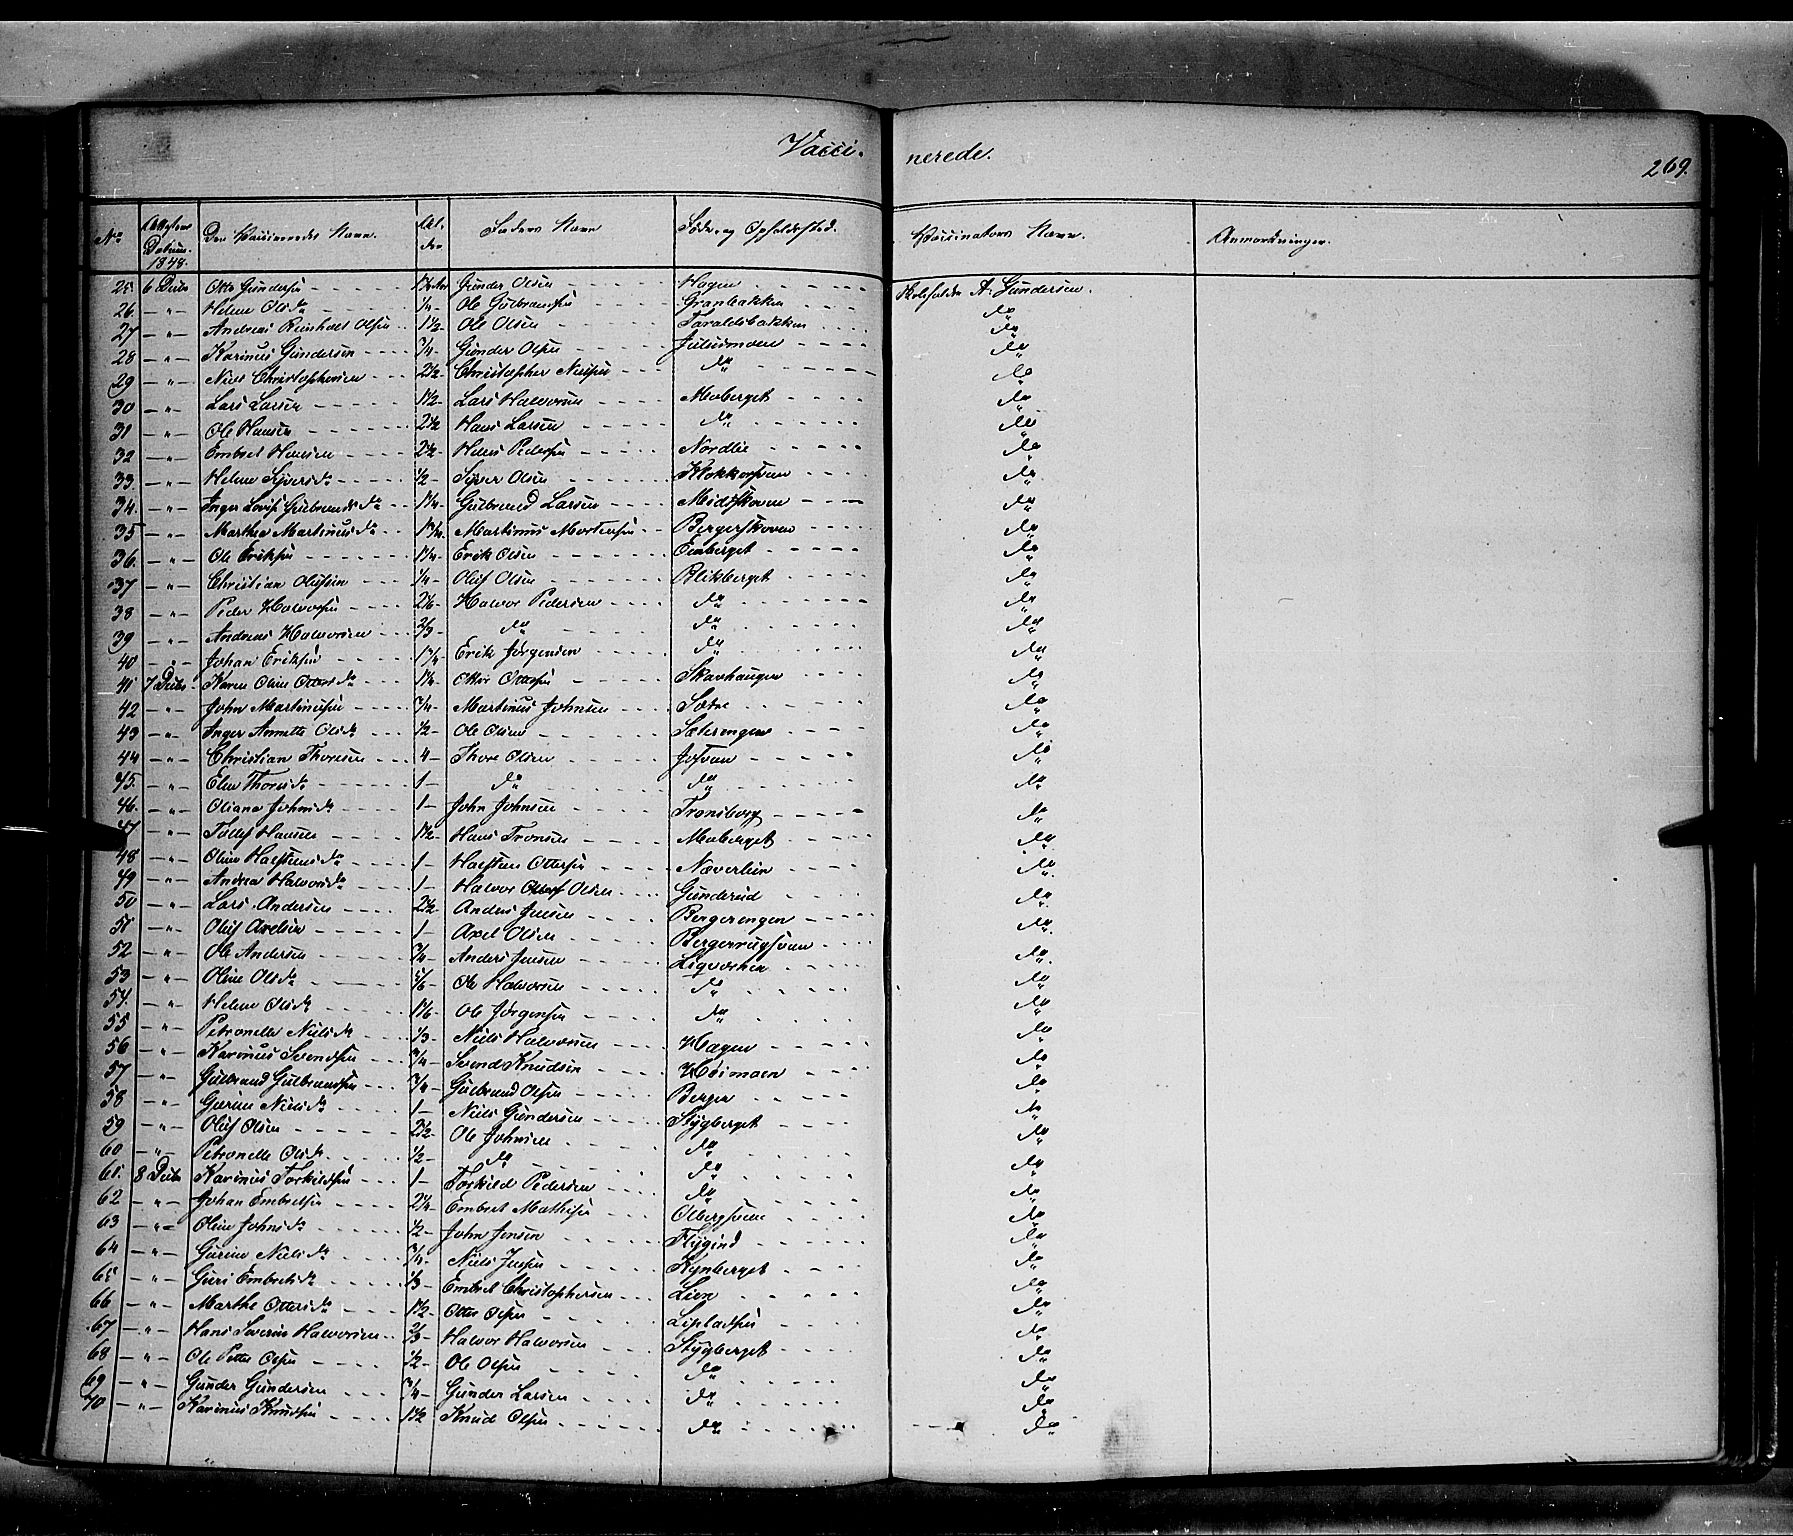 Vacci- nerede. 269.
No Attestens Datum 1848. Den Vaccineredes Navn. Alder Faders Navn Føde- og Opholdssted. Vaccinatørs Navn. Anmærkninger.
25 6 Decbr Otto Gundersen Gunder Olsen Hagen A. Gundersen.
26. — " — Helene Olsdr 1/4 - Ole Gulbrandsen Granbakken do
27 — " — Andreas Reinholdt Olsen 1 1/2 - Ole Olsen Taraldsbakken do
28 — " — Karinus Gundersen 3/4 - Gunder Olsen Julusmoen do
29 — " — Niels Christophersen 2 1/2 - Christopher Nielsen do do
30 — " — Lars Larsen 1 1/2 - Lars Halvorsen Moberget do
31 — " — Ole Hansen 2 1/2 Hans Larsen do do
32 — " — Embret Hansen 2 1/2 - Hans Pedersen Nordlie do
33. — " — Helene Syversdr 1/2 - Syver Olsen do
34. — " — Inger Lovise Gulbrandsdr 1 1/4 - Gulbrand Larsen Midtskoven do
35 — " — Marthe Martinusdr 1 3/4 - Martinus Mortensen Bergerskoven do
36. — " — Ole Eriksen 1 1/4 - Erik Olsen Emberget do
37 — " — Christian Olufsen 1/4 - Oluf Olsen Blikberget do
38 — " — Peder Halvorsen 2 1/6 - Halvor Pedersen do do
39 — " — Andreas Halvorsen 2/3 - do do do
40 — " — Johan Eriksen 1 3/4 - Erik Jørgensen do do
41 7 Decbr Karen Oline Ottersdr 1 1/2 - Otter Ottersen Skavhaugen do
42 — " — John Martinusen 3/4 - Martinus Johnsen Sætre do
43 — " — Inger Annette Olsdr 1/2 - Ole Olsen Sæterengen do
44 — " — Christian Thoresen 4 - Thore Olsen do
45. — " — Elen Thoresdr 1 - do do do
46. — " — Oliana Johnsdr 1 - John Johnsen Tronsborg do
47 — " — Tollef Hansen 1 1/2 - Hans Tronsen Moberget do
48 — " — Oline Halstensdr 1 - Halsten Ottersen Næverlien do
49 — " — Andrea Halvorsdr 1 - Halvor Olsen Gunderud do
50 — " — Lars Andersen 2 1/2 - Anders Jensen Bergerengen do
51 — " — Oluf Axelsen 1 - Axel Olsen do
52 — " — Ole Andersen 3/4 - Anders Jensen do
53 — " — Oline Olsdr 5/6 - Ole Halvorsen do do
54. — " — Helene Olsdr 1 1/6 - Ole Jørgensen do do
55 — " — Petronelle Nielsdr 1/3 - Niels Halvorsen Hagen do
56 — " — Karinus Svendsen 3/4 - Svend Knudsen Høimoen do
57 — " — Gulbrand Gulbrandsen 3/4 - Gulbrand Olsen Berger do
58 — " — Gurine Nielsdr 1 - Niels Gundersen Stygberget do
59 — " — Oluf Olsen 2 1/2 - Ole Johnsen do do
60 — " — Petronelle Olsdr 1/2 - do do do
61. 8 Decbr Karinus Torkildsen 1 - Torkild Pedersen do do
62 — " — Johan Embretsen 2 1/4 - Embret Mathisen do
63 — " — Oline Johnsdr 1/2 - John Jensen Flygind do
64 — " — Gurine Nielsdr 3/4 - Niels Jensen Kynberget do
65 — " — Guri Embretsdr 1/3 - Embret Christophersen Lien do
66 — " — Marthe Ottersdr 1 1/2 - Otter Olsen do
67 — " — Hans Severin Halvorsen 2/3 - Halvor Halvorsen Stygberget do
68 — " — Ole Petter Olsen 1/2 - Ole Olsen do do
69 — " — Gunder Gundersen 3/4 - Gunder Larsen do do
70 — " — Karinus Knudsen 1 1/2 - Knud Olsen do do